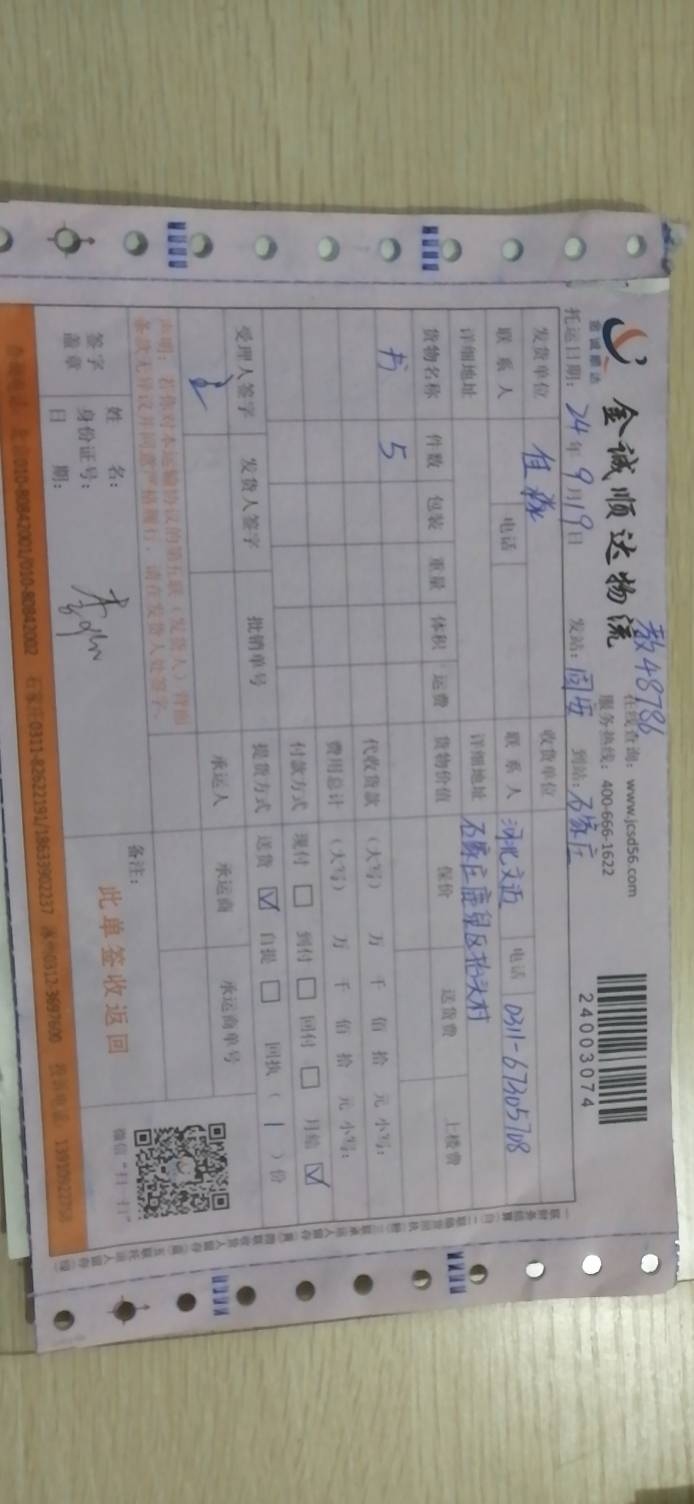 教48786
金诚顺达物流
金诚顺达
在线查询：www.jcsd56.com
服务热线：400-666-1622
24003074
托运日期：24年9月19日 发站：固安 到站：石家庄
发货单位 收货单位
联系人 电话 联系人 河北文迈 电话 0311-67305708
详细地址 详细地址 石家庄鹿泉区抬头村
货物名称 件数 包装 重量 体积 运费 货物价值 保价 送货费 上楼费
书 5
代收货款 （大写） 万 千 佰 拾 元 小写：
费用总计 （大写） 万 千 佰 拾 元 小写：
付款方式 现付 □ 到付 □ 回付 □ 月结 ☑
提货方式 送货 ☑ 自提 □ 回执（ 1 ）份
受理人签字 发货人签字 批销单号 承运人 承运商 承运商单号
声明：若你对本运输协议的第五联（发货人）背面
条款无异议并同意严格履行，请在发货人处签字。
签字
盖章
姓 名：
身份证号：
日 期：
备注：
此单签收返回
微信“扫一扫”
010-80842001/010-80842002 石家庄0311-82622191/18633902237 涿州0312-3697600